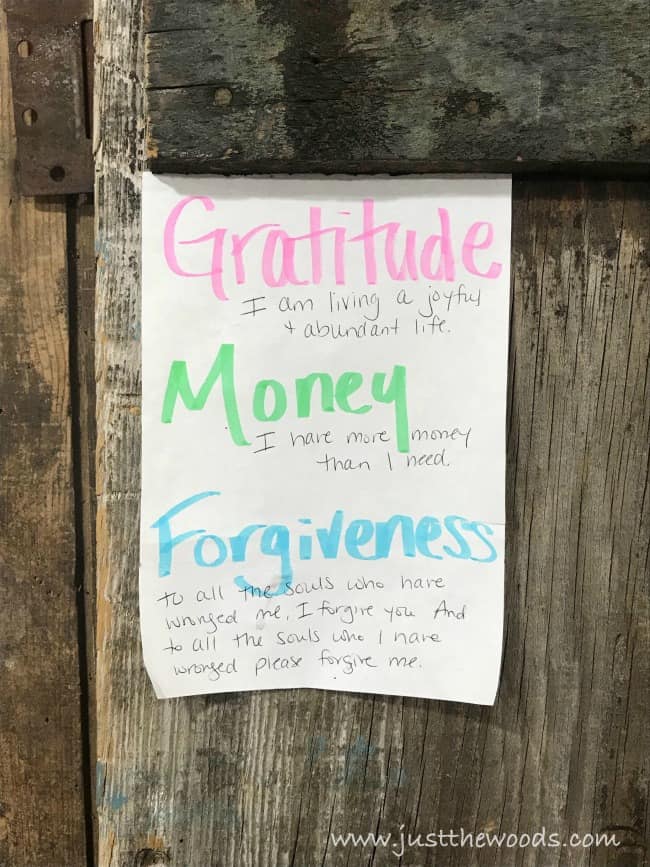 Gratitude
I am living a joyful
+ abundant life.
Money
I have more money
than I need.
Forgiveness
to all the souls who have
wronged me, I forgive you And
to all the souls who I have
wronged please forgive me.
www.justthewoods.com